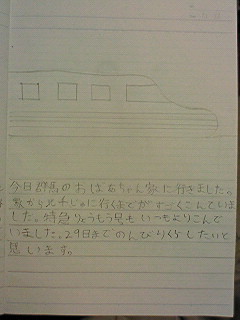 今日群馬のおばあちゃん家に行きました。
家から北千じゅに行くまでがすーごくこんでい
ました。特急りょうもう号もいつもよりこんで
いました。29日までのんびりくらしたいと
思います。